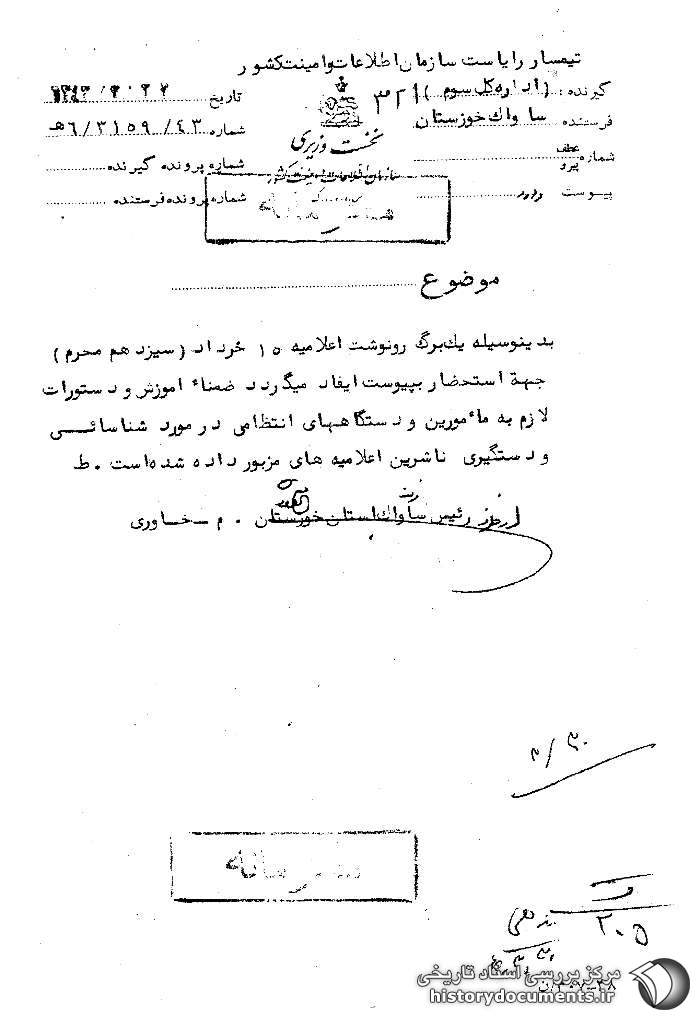 تیمسار ریاست سازمان اطلاعات و امنیت کشور
گیرنده : (اداره کل سوم) ۳۲۱
تاریخ
فرستنده ساواک خوزستان
شماره ۴۳/ ۳۱۵۹/ ۶هـ
نخست وزیری
شماره عطف پیرو
شماره پرونده گیرنده
سازمان اطلاعات و امنیت کشور
پیوست دارد
شماره پرونده فرستنده
موضوع
بدینوسیله یکبرگ رونوشت اعلامیه ۱۵ خرداد (سیزدهم محرم)
جهة استحضار بپیوست ایفاد میگردد ضمناً آموزش و دستورات
لازم به مأمورین و دستگاههای انتظامی در مورد شناسائی
و دستگیری ناشرین اعلامیه های مزبور داده شده است . ط
از طرف رئیس ساواک استان خوزستان . م – خاوری
۳/۳۰
محرمانه
۲۰۵
مرکز بررسی اسناد تاریخی
historydocuments.ir